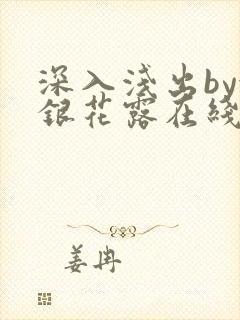 深入浅出by
銀花露在綫
姜冉